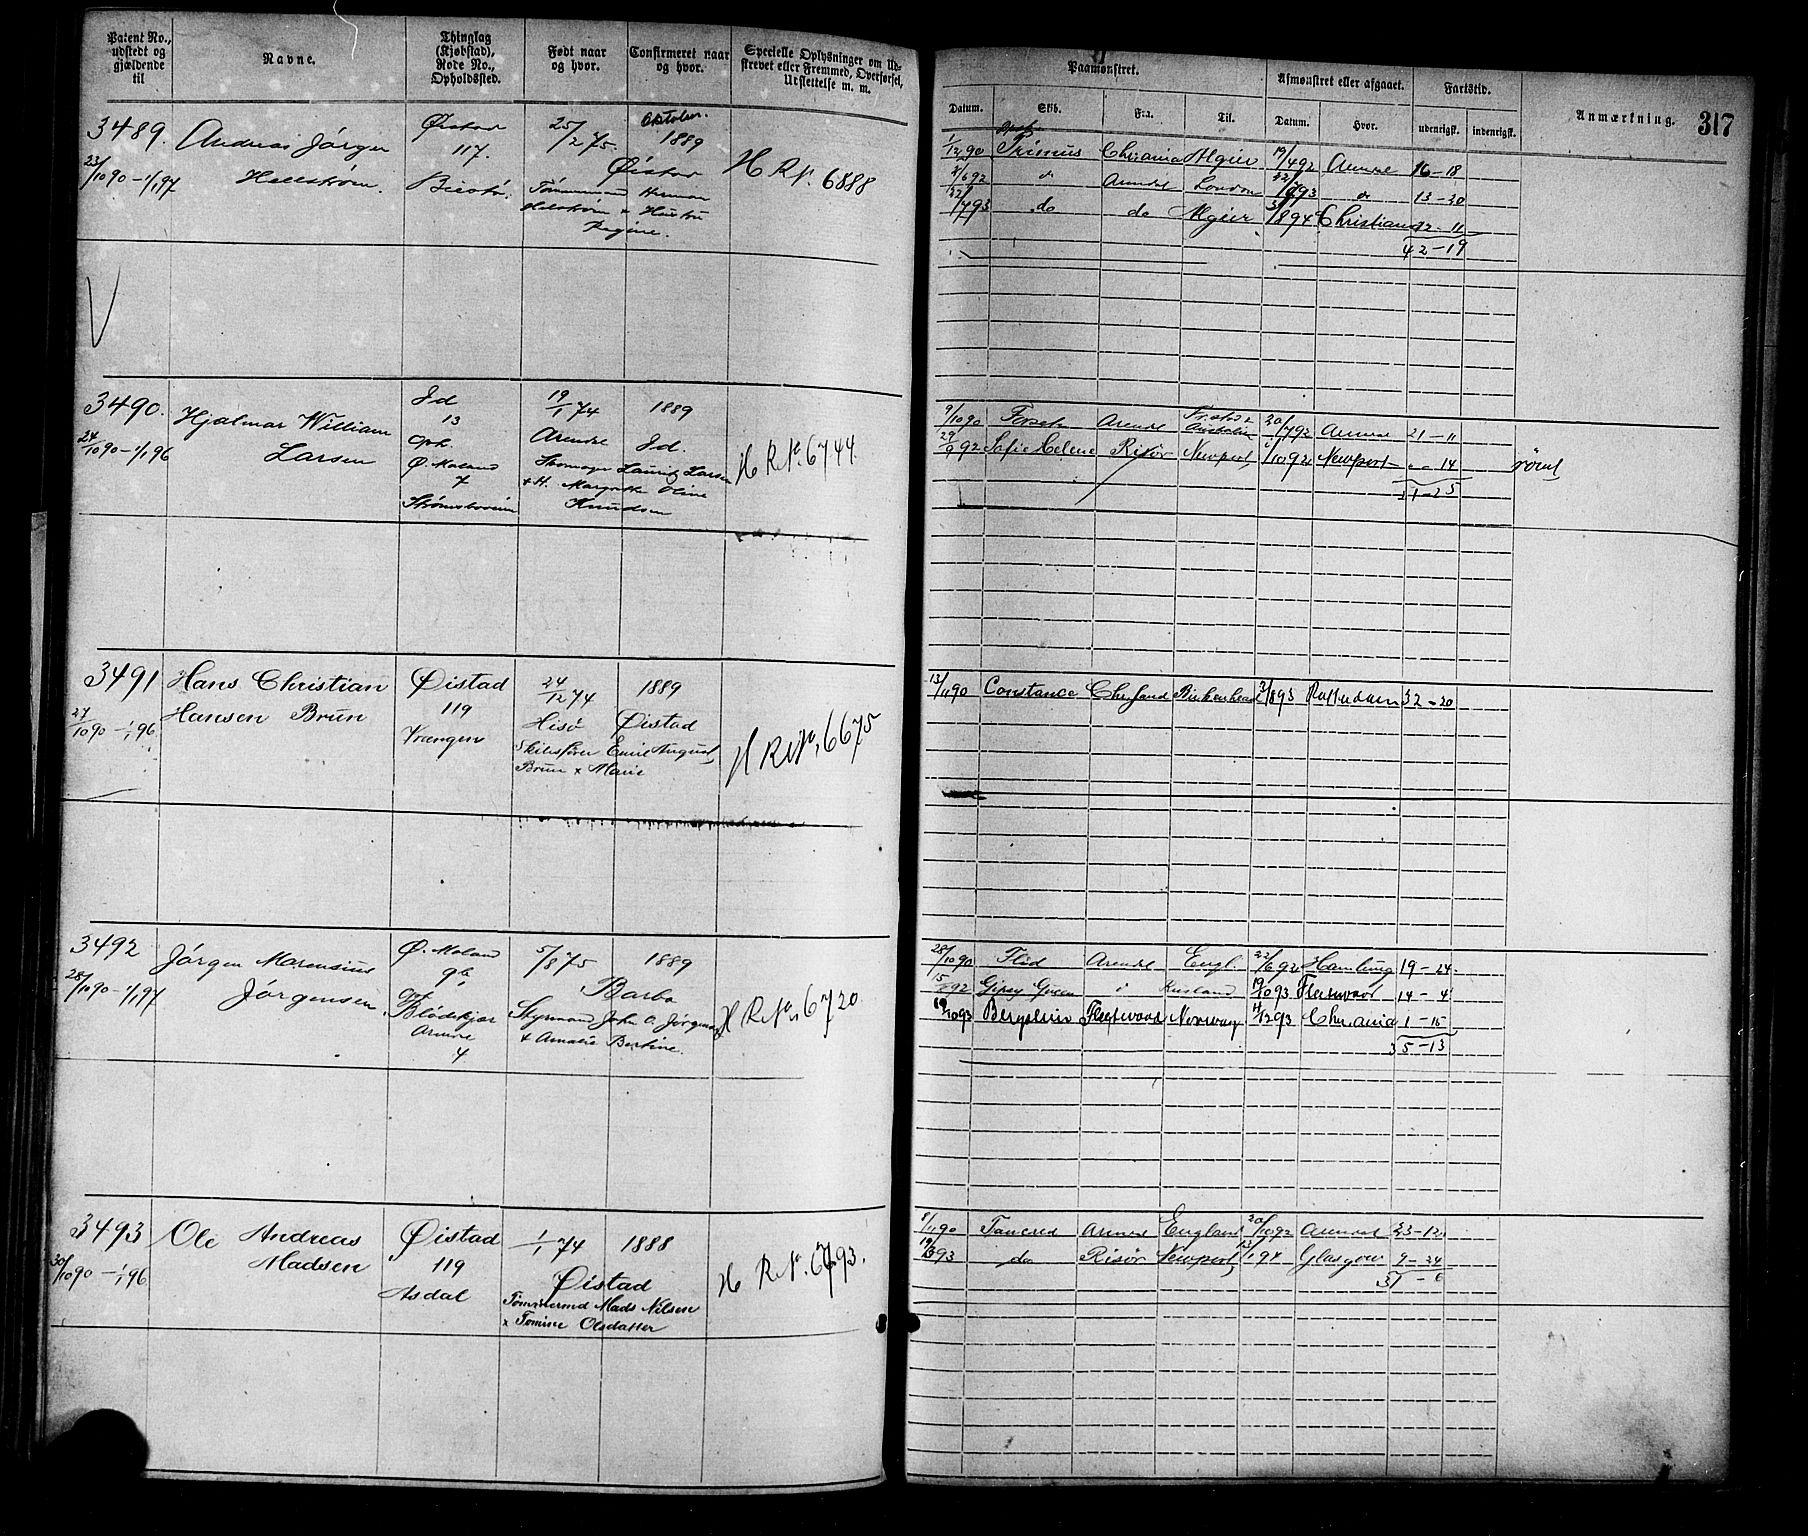 Patent No., udstedt og gjældende til
Navne.
Thinglag (Kjøbstad), Rode No., Opholdssted.
Født naar og hvor.
Confirmeret naar og hvor.
Specielle Oplysninger om Udskrevet eller Fremmed, Overførsel, Udslettelse m. m.
Paamønstret.
Afmønstret eller afgaaet.
Fartstid.
Anmærkning.
317
Datum.
Skib.
Fra.
Til.
Datum.
Hvor.
udenrigsk.
indenrigsk.
3489. Andreas Jørgen Øistad 25/2 75. Oktober. 1889
23/10 90 - 1/1 97 Hellstrøm. 117. Øistad H R No. 6888
Tømmermand Herman
Helstrøm + Hustru
Regine.
1/12 90 Primus Chrania Algier 19/4 92 Arendal 16-18
6 92 do Arendal London 93 do 13-20
22/7 93 do do Algier 8 94 Christiania 12-11
42-19
3490. Hjalmar William Id 19/1 74 1889
24/10 90 - 1/1 96 Larsen 13 Arendal Id.
Oph.
Ø. Moland Lauritz Larsen H R No. 6744.
7 + H. Margrethe Oline
Knudsen
9/10 90 Arendal 20/7 92 Arendal 21-11
29/9 92 Sofie Helene Risør Newport 10 92 Newport - 14 rømt
21-25
3491 Hans Christian Øistad 24/12 74 1889
27/10 90 - 1/1 96 Hansen Brun 119 Hisø Øistad
Vrengen Skibsfører Emil August H R No. 6675
Brun + Marie
13/11 90 Constance Birkenhead 8 93 Rotterdam 32-20
3492 Jørgen Marensius Ø. Moland 5/8 75 1889
28/10 90 - 1/1 97 Jørgensen 96 Barbo
Oph.
Flødekjær Styrmand John O. Jørgensen H R No. 6720
Arendal + Amalie Bertine.
4.
28/10 90 Flid Arendal Engl. 22/6 92 Hamburg 19-24
92 Gipsy Queen Rusland 19/10 93 Fleetwood 14-4
19/10 93 Fleetwood Norway 12 93 Chrania 1-15
35-13
3493 Ole Andreas Øistad 1/1 74 1888
30/10 90 - 1/1 96 Madsen 119 Øistad H R No. 6793.
Asdal Tømmermd Mads Nilsen
+ Tomine Olsdatter
8/11 90 Tancred Arendal England 20/10 92 Arendal 23-12
19/3 93 do Risør Newport 1 94 Glasgow 9-24
31-6